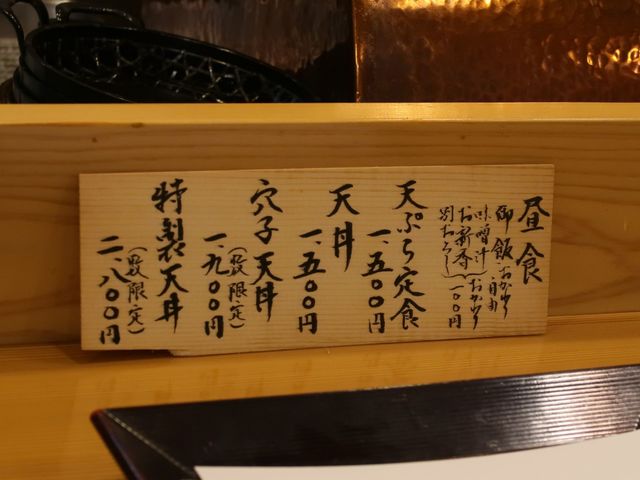 昼食
御飯おかわり自由
味噌汁
お新香
別おろし
おかわり
一〇〇円
天ぷら定食
一、五〇〇円
天丼
一、五〇〇円
穴子天丼
(数限定)
一、九〇〇円
特製天丼
(数限定)
二、八〇〇円